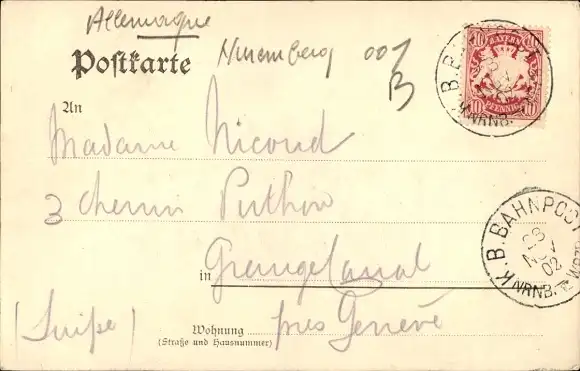 Allemagne
Postkarte
Nuremberg 001
B
BAYERN
10 10
PFENNIG
10 10
K.B. BAHNPOST
NRNB.
An
Madame Nicoud
3 Chemin
in Grange Canal
(Suisse)
près Genève
Wohnung
(Straße und Hausnummer)
K.B. BAHNPOST
28
NOV
02
NRNB.